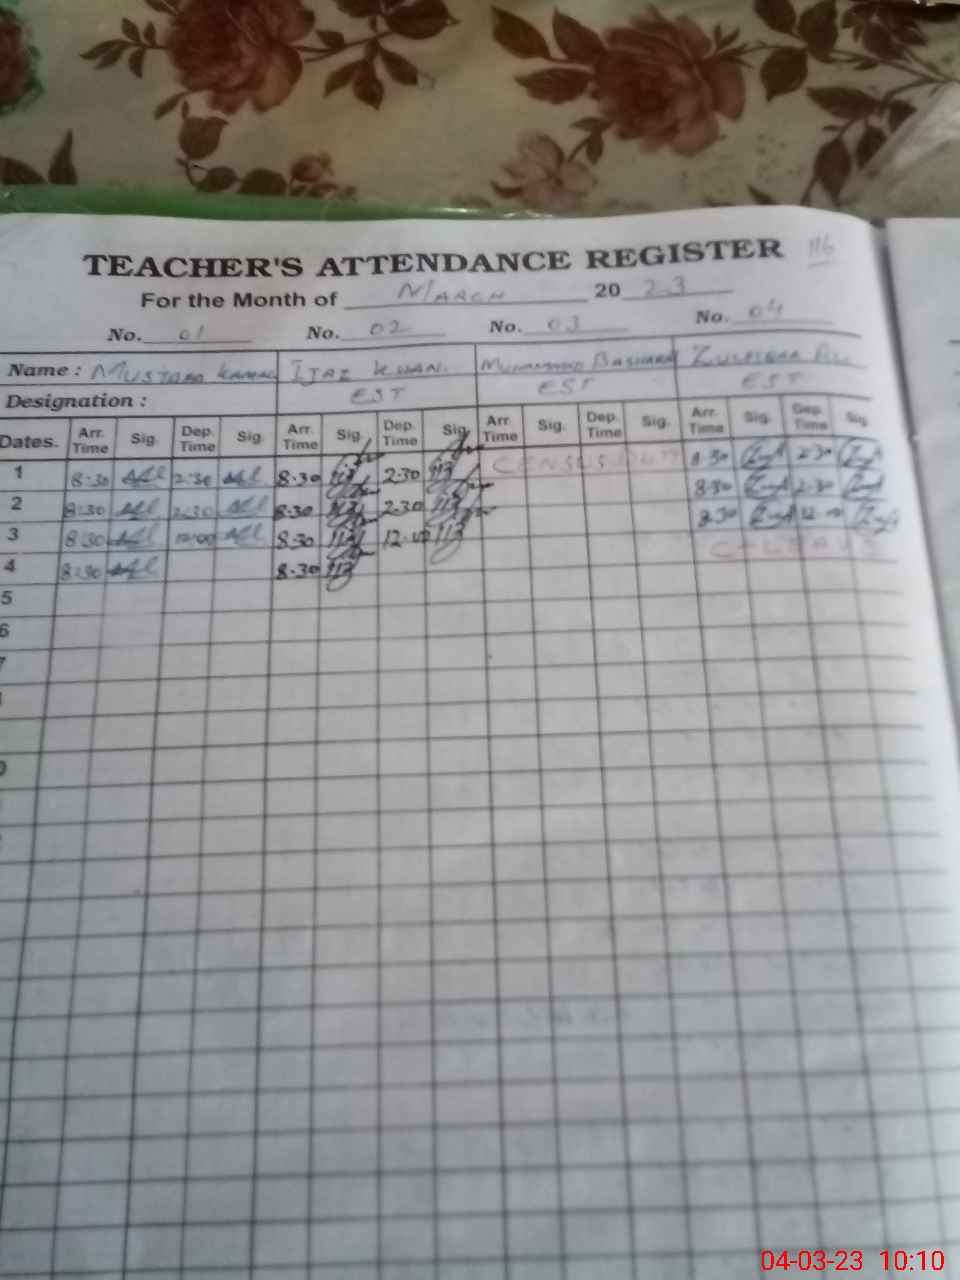 TEACHER'S ATTENDANCE REGISTER 116
For the Month of MARCH 2023
No. 01 No. 02 No. 03 No. 04
Name : MUSTAFA KAMAL IJAZ KHAN. MUHAMMAD BASHARAT ZULFIQAR ALI
Designation : EST EST EST
Dates. Arr. Time Sig. Dep. Time Sig. Arr. Time Sig. Dep. Time Sig. Arr. Time Sig. Dep. Time Sig. Arr. Time Sig. Dep. Time Sig.
1 8:30 2:30 8.30 2.30 CENSUS DUTY 8.30 2.30
2 8:30 2:30 8.30 2.30 8.30 2.30
3 8:30 12:00 8.30 12.00 8.30 12.00
4 8:30 8.30 C-LEAVE
5
6
7
04-03-23 10:10